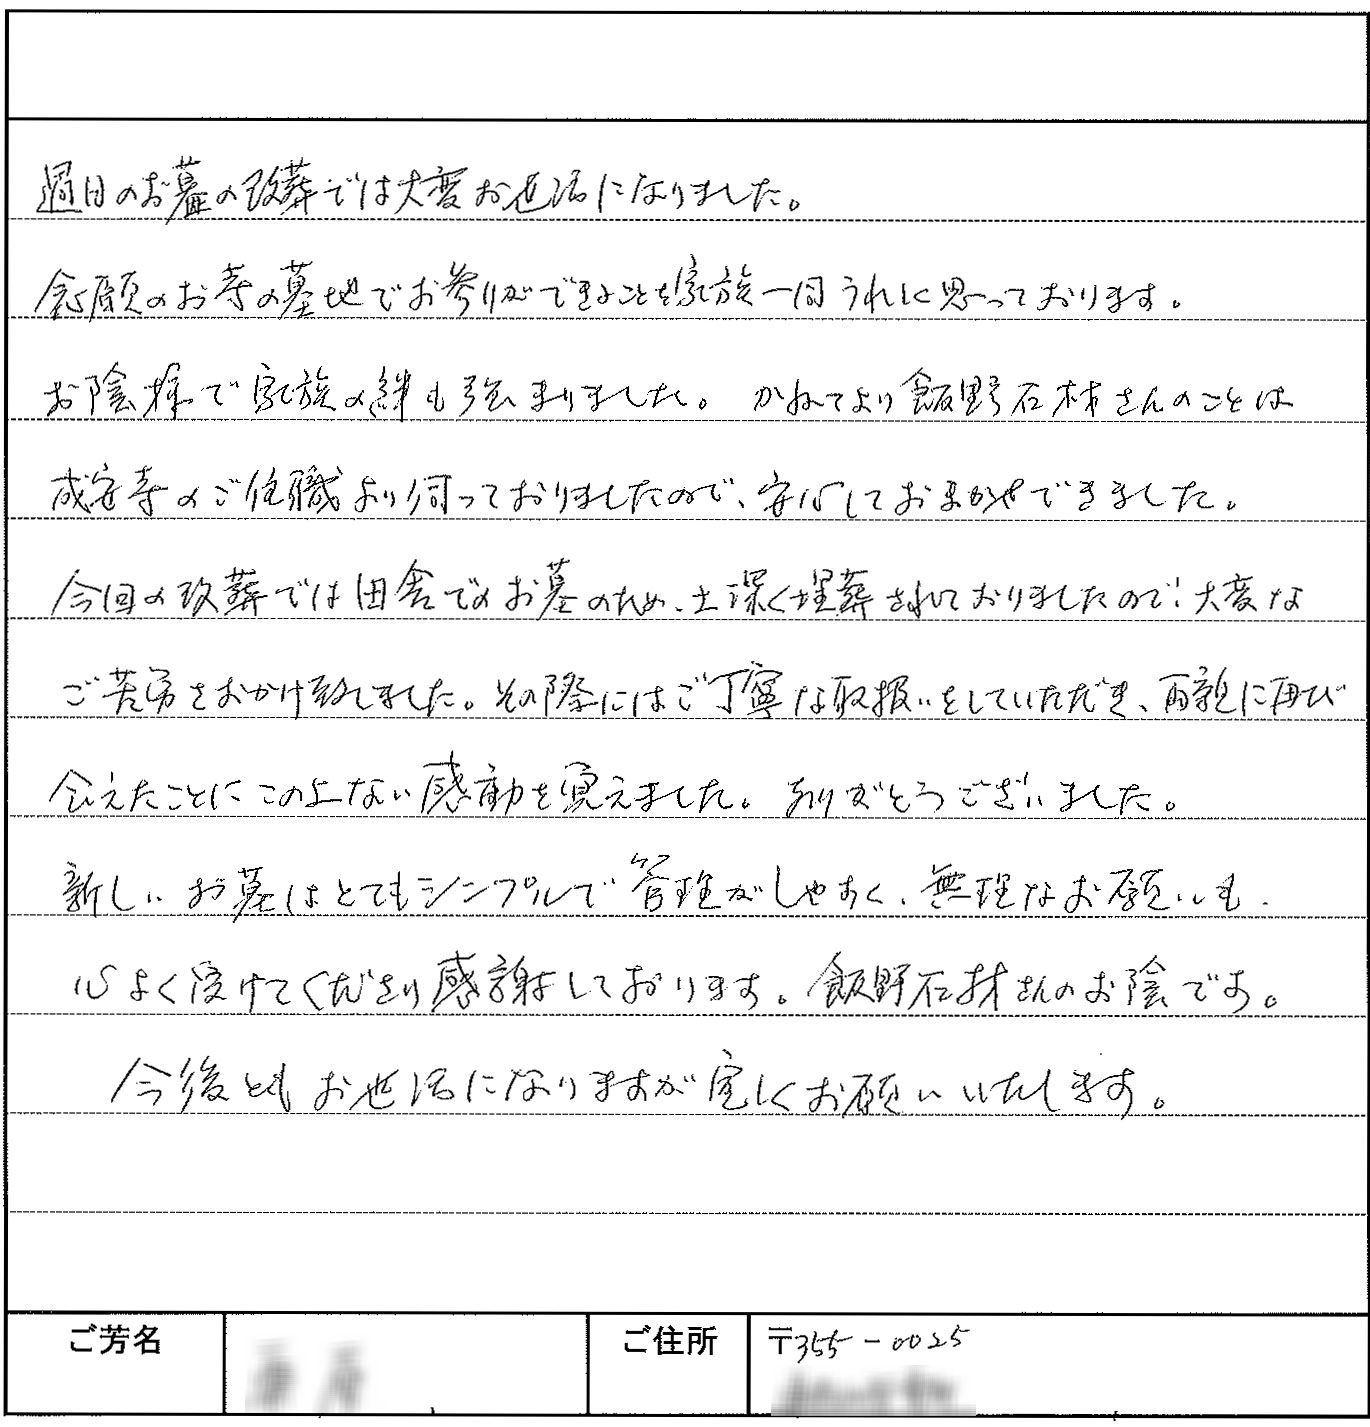 過日のお墓の改葬では大変お世話になりました。
念願のお寺の墓地でお参りができることを家族一同うれしく思っております。
お陰様で家族の絆も強まりました。かねてより飯野石材さんのことは
成安寺のご住職より伺っておりましたので、安心しておまかせできました。
今回の改葬では田舎でのお墓のため、土深く埋葬されておりましたので、大変な
ご苦労をおかけ致しました。その際にはご丁寧な取扱いをしていただき、両親に再び
会えたことにこの上ない感動を覚えました。ありがとうございました。
新しいお墓はとてもシンプルで管理がしやすく、無理なお願いも
心よく受けてくださり感謝しております。飯野石材さんのお陰です。
今後ともお世話になりますが宜しくお願いいたします。
ご芳名
ご住所 〒355-0025